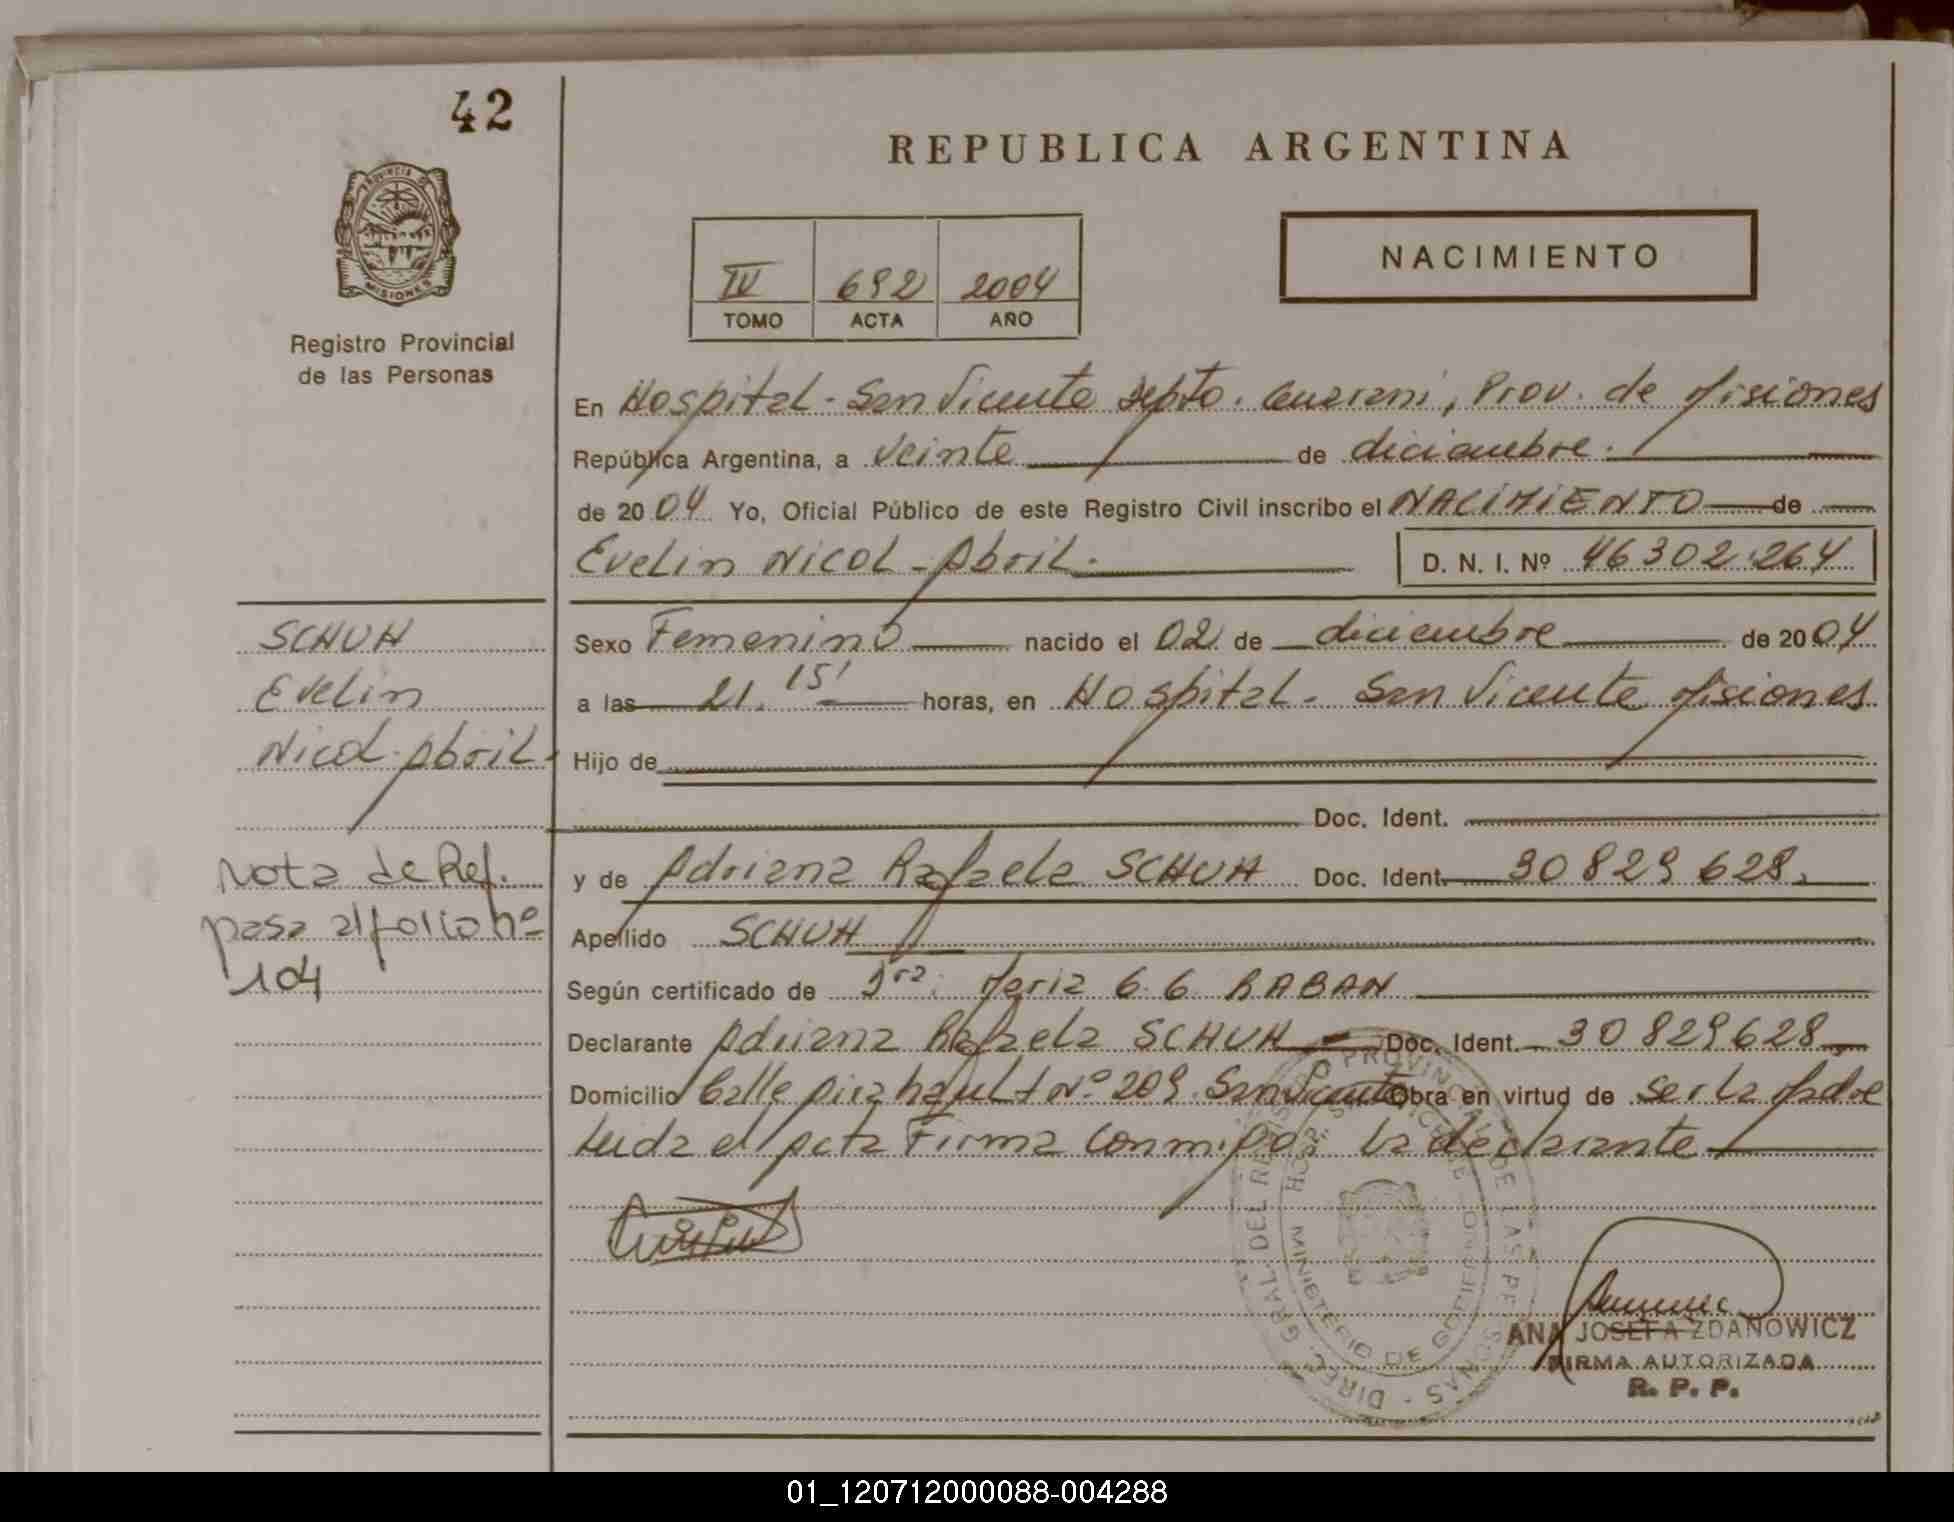 42
REPUBLICA ARGENTINA
PROVINCIA DE
MISIONES
Registro Provincial
de las Personas
NACIMIENTO
IV 692 2004
TOMO ACTA AÑO
En Hospital - San Vicente Depto. Guarani, Prov. de Misiones
República Argentina, a veinte de diciembre.
de 2004 Yo, Oficial Público de este Registro Civil inscribo el NACIMIENTO de
Evelin Nicol - Abril.
D. N. I. Nº 46302.264
SCHUH
Evelin
Nicol - Abril -
Sexo Femenino nacido el 02 de diciembre de 2004
a las 21. 15' horas, en Hospital - San Vicente Misiones
Hijo de
Doc. Ident.
Nota de Ref.
pasa al folio nº
104
y de Adriana Rafaela SCHUH Doc. Ident. 30829628.
Apellido SCHUH
Según certificado de Maria G. G. RABAN
Declarante Adriana Rafaela SCHUH - Doc. Ident. 30829628
Domicilio Calle Nº 209. San Vicente Obra en virtud de ser la Madre
Leida el Acta Firma conmigo; la declarante
DIREC. GRAL. DEL REGISTRO PROVINCIAL DE LAS PERSONAS -
HOSP. SAN VICENTE - MINISTERIO DE GOBIERNO
ANA JOSEFA ZDANOWICZ
FIRMA AUTORIZADA
R. P. P.
01_120712000088-004288